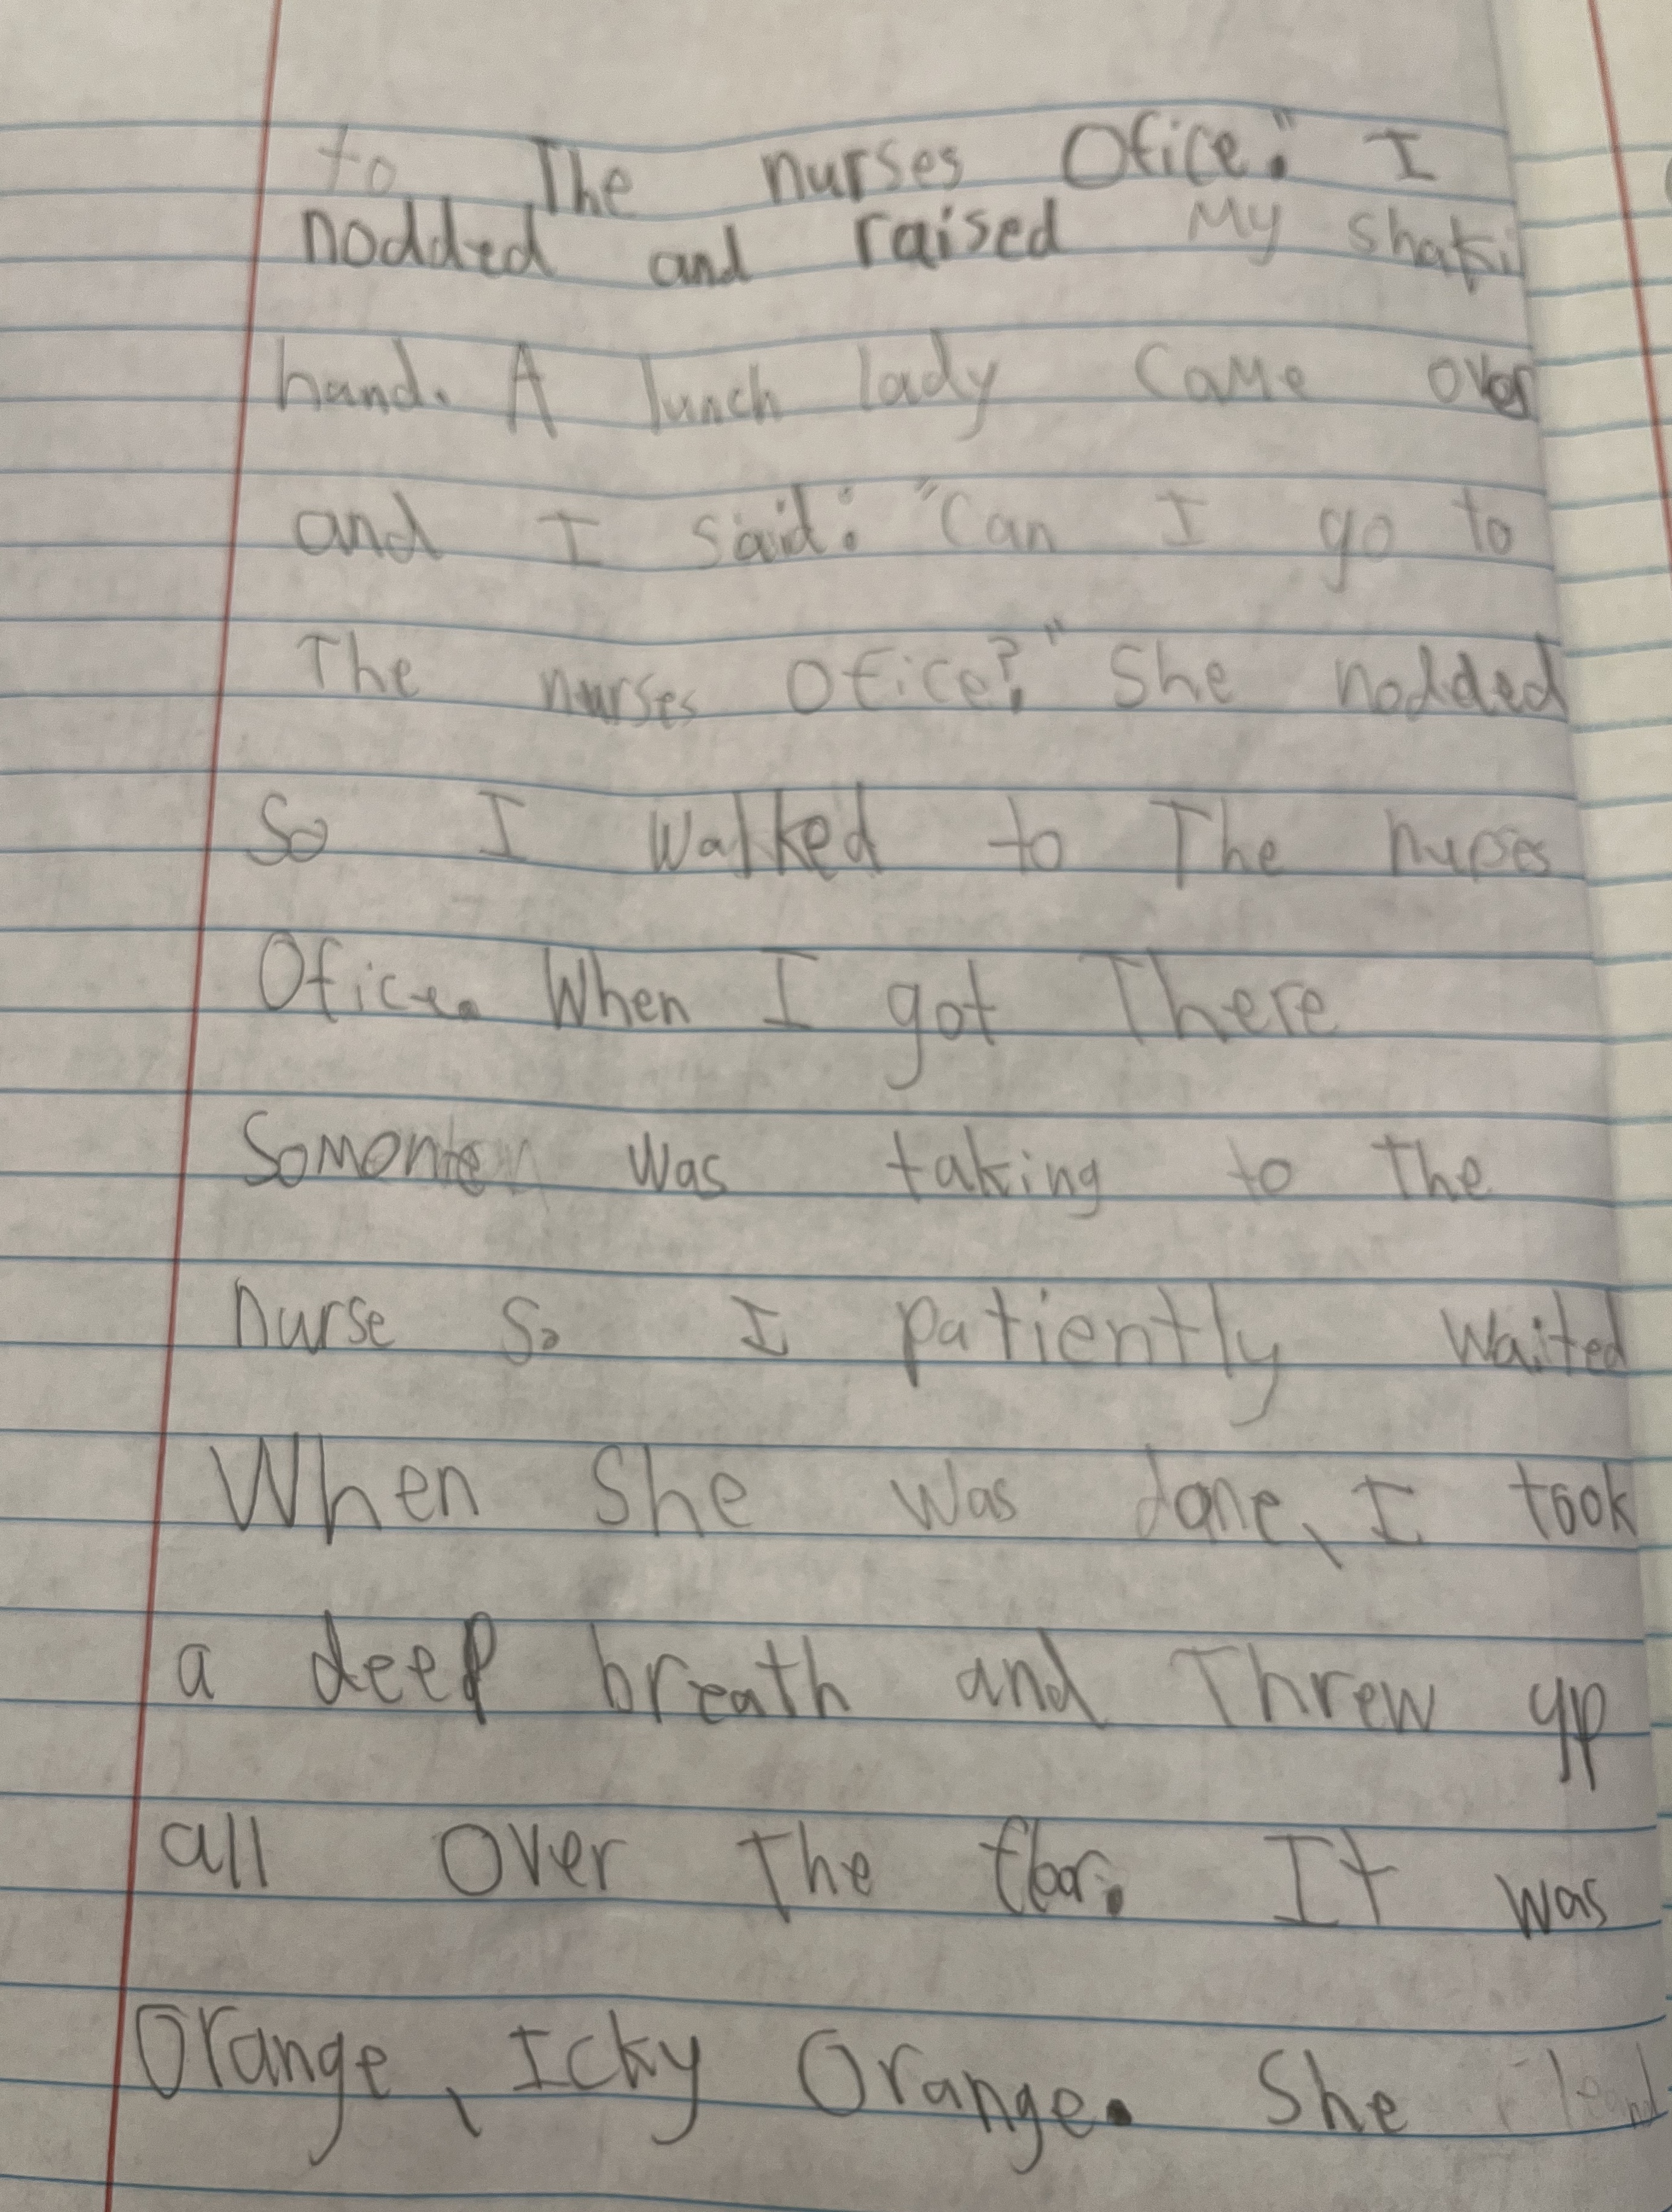 to The nurses Ofice." I
nodded and raised My
hand. A lunch lady Came over
and I said: "Can I go to
The nurses Ofice?" She nodded
So I Walked to The nurses
Ofice. When I got There
was taking to The
nurse So I patiently waited
When She was done, I took
a deep breath and Threw up
all Over The floor. It was
Orange, Icky Orange. She